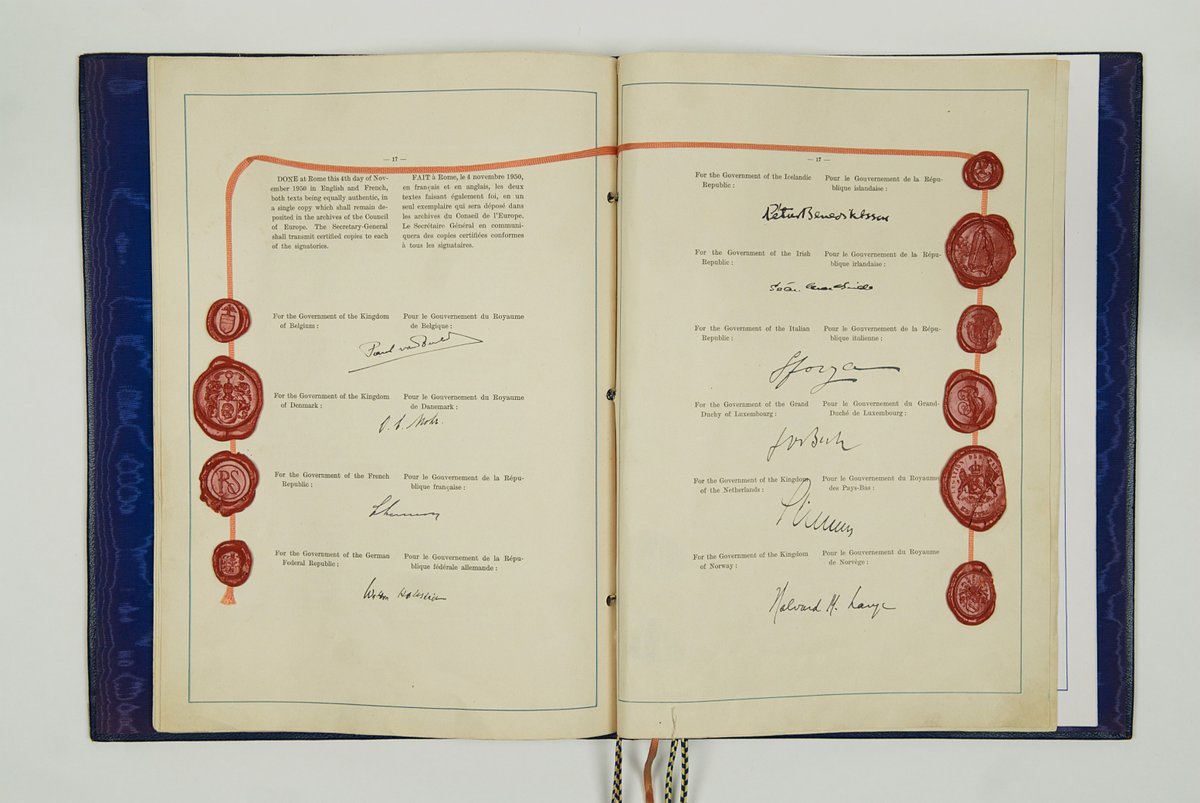 — 17 —
DONE at Rome this 4th day of Nov-
ember 1950 in English and French,
both texts being equally authentic, in
a single copy which shall remain de-
posited in the archives of the Council
of Europe. The Secretary-General
shall transmit certified copies to each
of the signatories.
FAIT à Rome, le 4 novembre 1950,
en français et en anglais, les deux
textes faisant également foi, en un
seul exemplaire qui sera déposé dans
les archives du Conseil de l'Europe.
Le Secrétaire Général en communi-
quera des copies certifiées conformes
à tous les signataires.
For the Government of the Kingdom
of Belgium :
Pour le Gouvernement du Royaume
de Belgique :
Paul van
For the Government of the Kingdom
of Denmark :
Pour le Gouvernement du Royaume
de Danemark :
For the Government of the French
Republic :
Pour le Gouvernement de la Répu-
blique française :
RS
For the Government of the German
Federal Republic :
Pour le Gouvernement de la Répu-
blique fédérale allemande :
— 17 —
For the Government of the Icelandic
Republic :
Pour le Gouvernement de la Répu-
blique islandaise :
Pétur Benediktsson
For the Government of the Irish
Republic :
Pour le Gouvernement de la Répu-
blique irlandaise :
For the Government of the Italian
Republic :
Pour le Gouvernement de la Répu-
blique italienne :
Sforza
For the Government of the Grand
Duchy of Luxembourg :
Pour le Gouvernement du Grand-
Duché de Luxembourg :
For the Government of the Kingdom
of the Netherlands :
Pour le Gouvernement du Royaume
des Pays-Bas :
For the Government of the Kingdom
of Norway :
Pour le Gouvernement du Royaume
de Norvège :
Halvard M. Lange